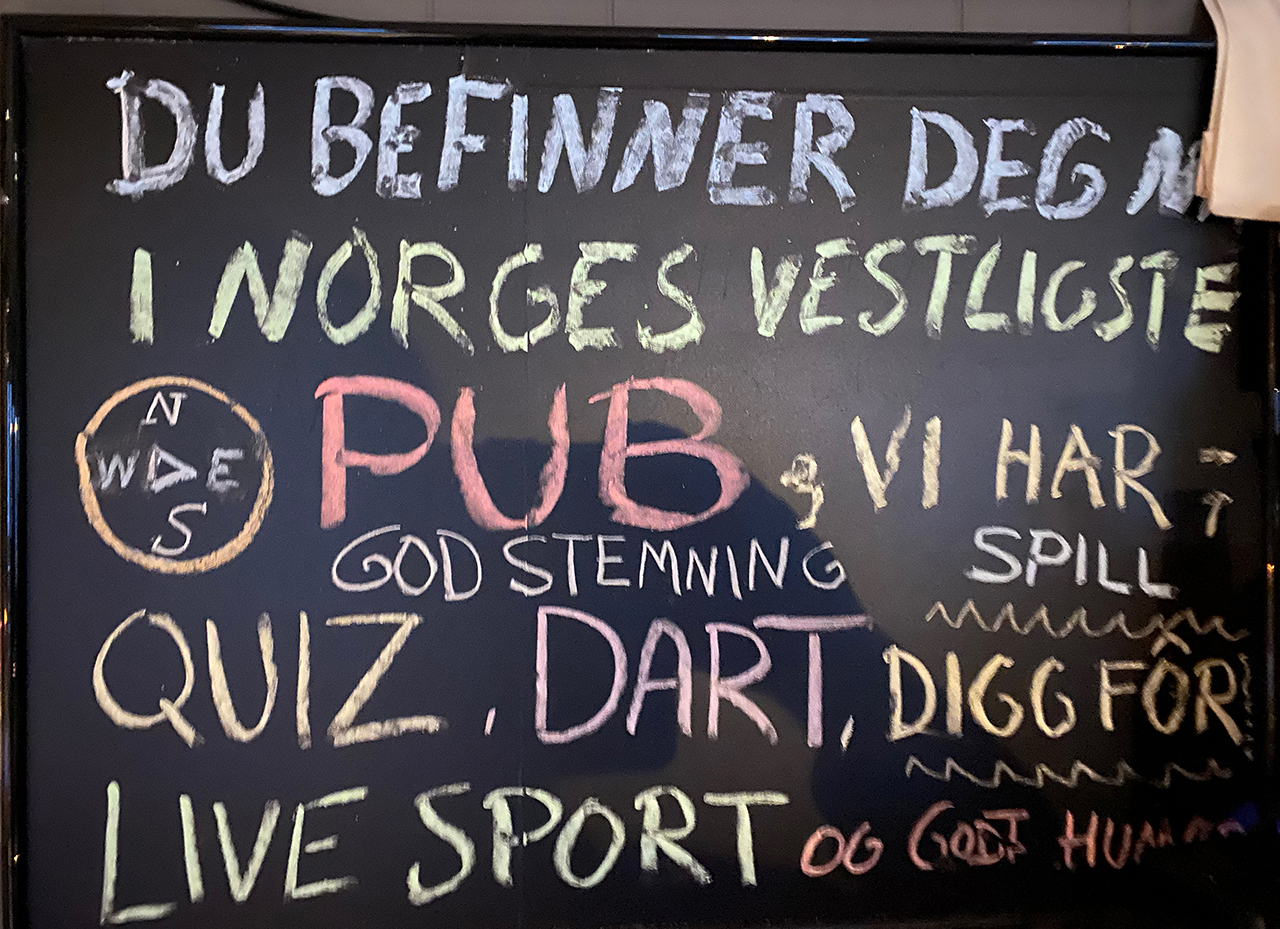 DU BEFINNER DEG
I NORGES VESTLIGSTE
N
W E
S
PUB, VI HAR;
GOD STEMNING SPILL
QUIZ, DART, DIGG FÔR
LIVE SPORT OG GODT